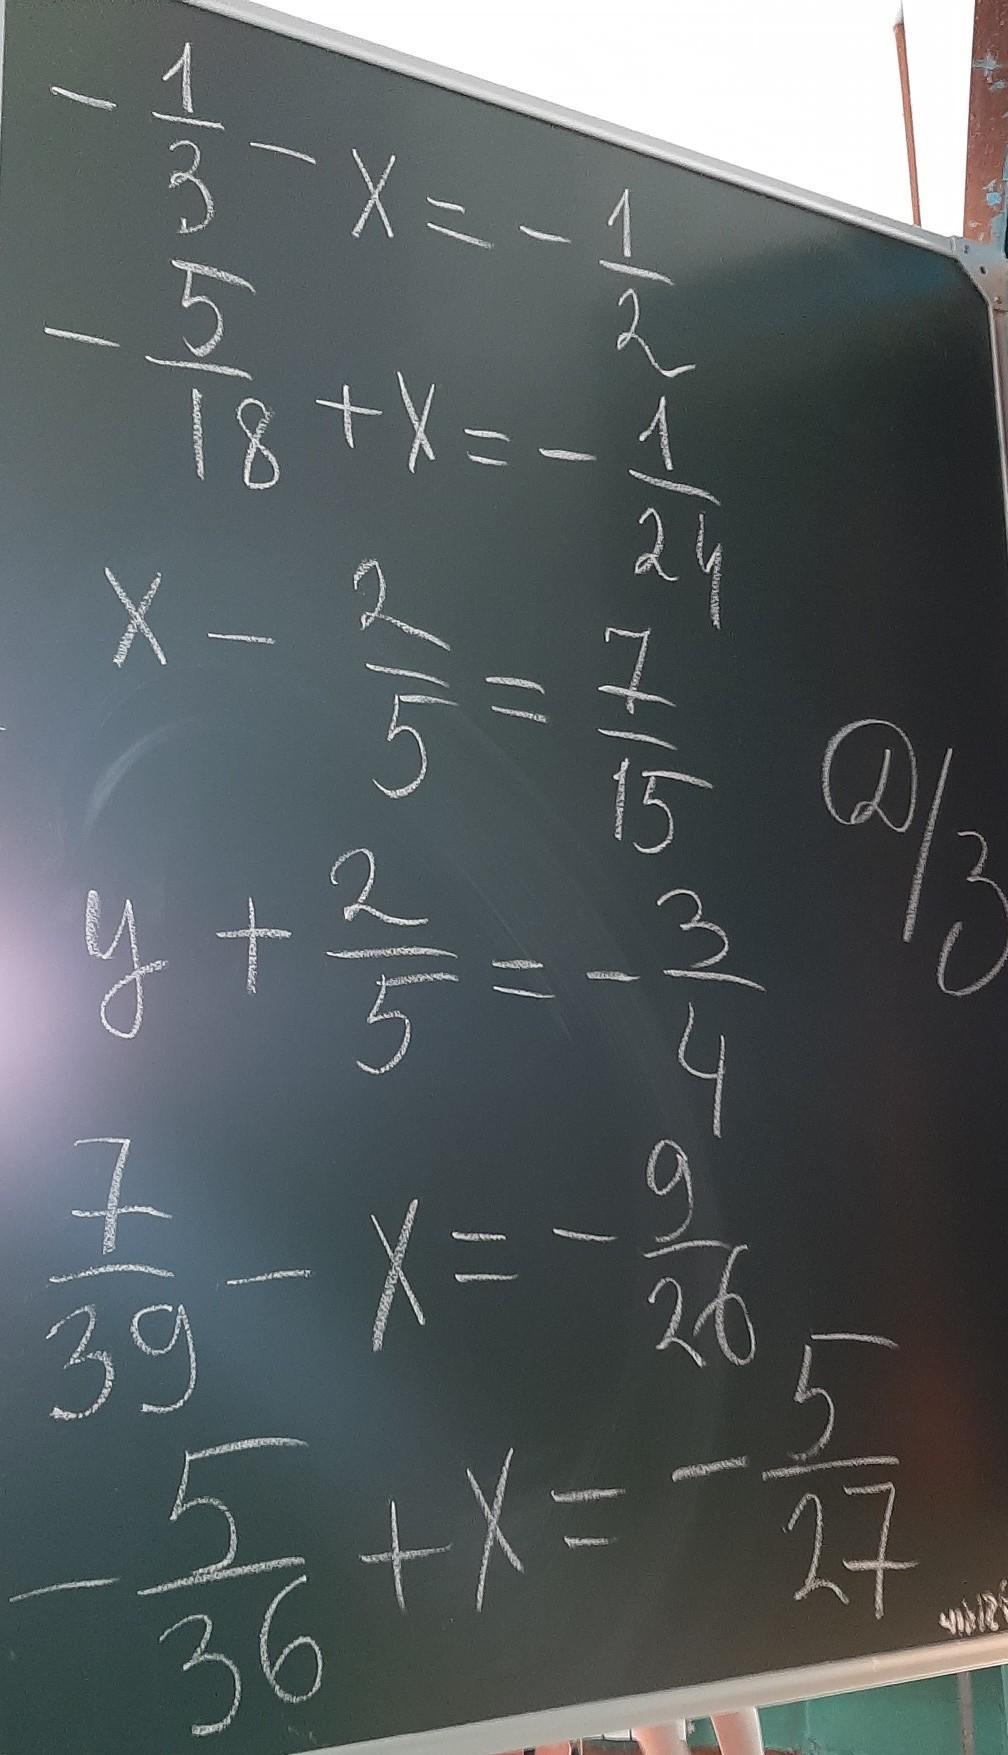 - 1/3 - x = - 1/2
- 5/18 + x = - 1/24
x - 2/5 = 7/15
Д/З
y + 2/5 = - 3/4
7/39 - x = - 9/26
- 5/36 + x = - 5/27